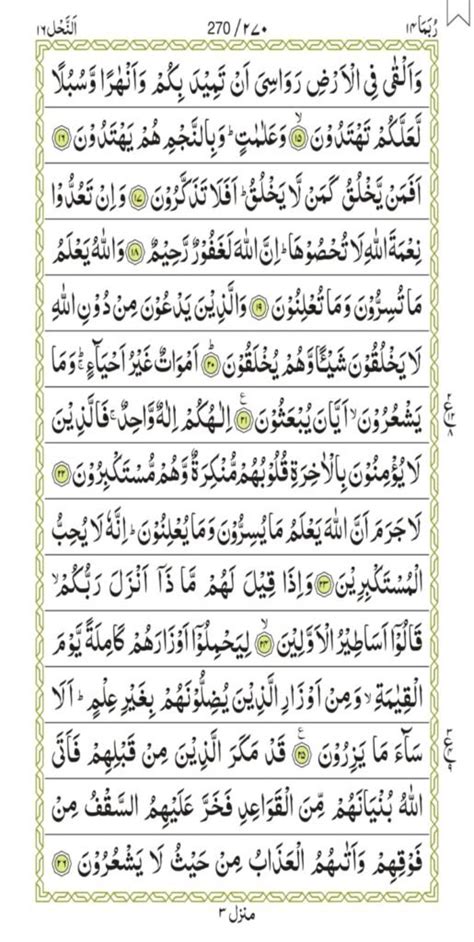 رُبَمَا ١٤
270 / ٢٧٠
اَلنَّحْل ١٦
وَاَلْقٰى فِى الْاَرْضِ رَوَاسِىَ اَنْ تَمِيْدَ بِكُمْ وَاَنْهٰرًا وَّسُبُلًا
لَّعَلَّكُمْ تَهْتَدُوْنَ ۙ‏﴿۱۵﴾ وَعَلٰمٰتٍ‌ؕ وَبِالنَّجْمِ هُمْ يَهْتَدُوْنَ ﴿۱۶﴾
اَفَمَنْ يَّخْلُقُ كَمَنْ لَّا يَخْلُقُ‌ؕ اَفَلَا تَذَكَّرُوْنَ ﴿۱۷﴾ وَاِنْ تَعُدُّوْا
نِعْمَةَ اللّٰهِ لَا تُحْصُوْهَا‌ؕ اِنَّ اللّٰهَ لَغَفُوْرٌ رَّحِيْمٌ ﴿۱۸﴾ وَاللّٰهُ يَعْلَمُ
مَا تُسِرُّوْنَ وَمَا تُعْلِنُوْنَ ﴿۱۹﴾ وَالَّذِيْنَ يَدْعُوْنَ مِنْ دُوْنِ اللّٰهِ
لَا يَخْلُقُوْنَ شَيْـًٔا وَّهُمْ يُخْلَقُوْنَؕ ﴿۲۰﴾ اَمْوَاتٌ غَيْرُ اَحْيَآءٍ‌ۚ وَمَا
يَشْعُرُوْنَۙ اَيَّانَ يُبْعَثُوْنَ ﴿۲۱﴾ اِلٰهُكُمْ اِلٰهٌ وَّاحِدٌ‌ۚ فَالَّذِيْنَ
لَا يُؤْمِنُوْنَ بِالْاٰخِرَةِ قُلُوْبُهُمْ مُّنْكِرَةٌ وَّهُمْ مُّسْتَكْبِرُوْنَ ﴿۲۲﴾
لَا جَرَمَ اَنَّ اللّٰهَ يَعْلَمُ مَا يُسِرُّوْنَ وَمَا يُعْلِنُوْنَ‌ؕ اِنَّهٗ لَا يُحِبُّ
الْمُسْتَكْبِرِيْنَ ﴿۲۳﴾ وَاِذَا قِيْلَ لَهُمْ مَّا ذَاۤ اَنْزَلَ رَبُّكُمْ‌ۙ
قَالُوْۤا اَسَاطِيْرُ الْاَوَّلِيْنَۙ ﴿۲۴﴾ لِيَحْمِلُوْۤا اَوْزَارَهُمْ كَامِلَةً يَّوْمَ
الْقِيٰمَةِ‌ۙ وَمِنْ اَوْزَارِ الَّذِيْنَ يُضِلُّوْنَهُمْ بِغَيْرِ عِلْمٍ‌ؕ اَلَا
سَآءَ مَا يَزِرُوْنَ ﴿۲۵﴾ قَدْ مَكَرَ الَّذِيْنَ مِنْ قَبْلِهِمْ فَاَتَى
اللّٰهُ بُنْيَانَهُمْ مِّنَ الْقَوَاعِدِ فَخَرَّ عَلَيْهِمُ السَّقْفُ مِنْ
فَوْقِهِمْ وَاَتٰٮهُمُ الْعَذَابُ مِنْ حَيْثُ لَا يَشْعُرُوْنَ ﴿۲۶﴾
منزل ٣